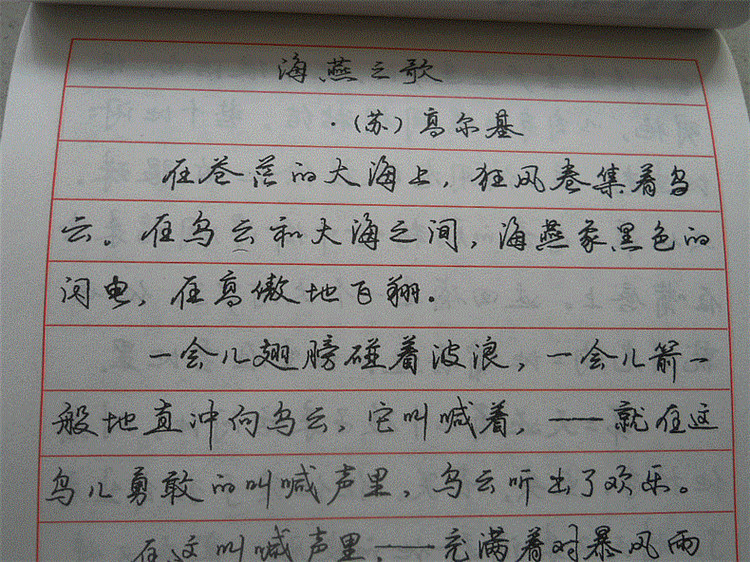 海燕之歌
·（苏）高尔基
在苍茫的大海上，狂风卷集着乌
云。在乌云和大海之间，海燕象黑色的
闪电，在高傲地飞翔。
一会儿翅膀碰着波浪，一会儿箭一
般地直冲向乌云，它叫喊着，——就在这
鸟儿勇敢的叫喊声里，乌云听出了欢乐。
在这叫喊声里，——充满着对暴风雨